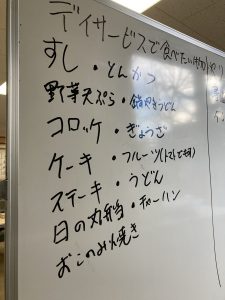 デイサービスで食べたい
すし・とんかつ
野菜天ぷら・鍋やきうどん
コロッケ・ぎょうざ
ケーキ・フルーツ(トマト
ステーキ・うどん
日の丸弁当・チャーハン
おこのみ焼き